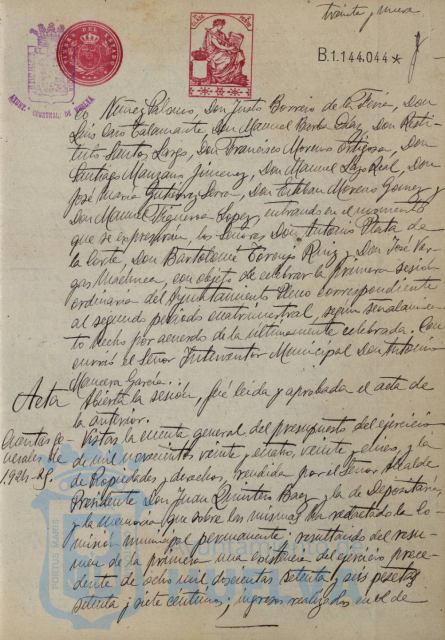 treinta y nueve
B.1.144.044*
co Núñez Palomo, Don Justo Borrero de la Feria, Don
Luis Oso Talamante, Don Manuel Barba Díaz, Don Resti-
tuto Santos Largo, Don Francisco Moreno Ortigosa, Don
Santiago Manzano Jimenez, Don Manuel Real, Don
José María Gutierrez Sera, Don Esteban Moreno Gomez y
Don Manuel Figueroa Lopez, entrando en el momento
que se expresarán, los Señores Don Antonio Plata de
la Corte, Don Bartolomé Toronjo Ruiz y Don José Var-
gas Machuca, con objeto de celebrar la primera sesión
ordinaria del Ayuntamiento Pleno correspondiente
al segundo período cuatrimestral, según señalamien-
to hecho por acuerdo de la últimamente celebrada. Con-
currió el Señor Interventor Municipal Don Antonio
Manzera Garcia.
Acta Abierta la sesión, fué leida y aprobada el acta de
la anterior.
Cuentas ge-
nerales de
1924-25.
Vistas la cuenta general del presupuesto del ejercicio
de mil novecientos veinte y cuatro, veinte y cinco, y la
de Propiedades y derechos, rendida por el Señor Alcalde
Presidente Don Juan Quintero Baez y la de Depositaria
y la memoria que sobre las mismas ha redactado la Co-
misión municipal permanente; resultando del resu-
men de la primera una existencia del ejercicio prece-
dente de ocho mil doscientas setenta y seis pesetas
setenta y siete centimos; ingresos realizados en el de